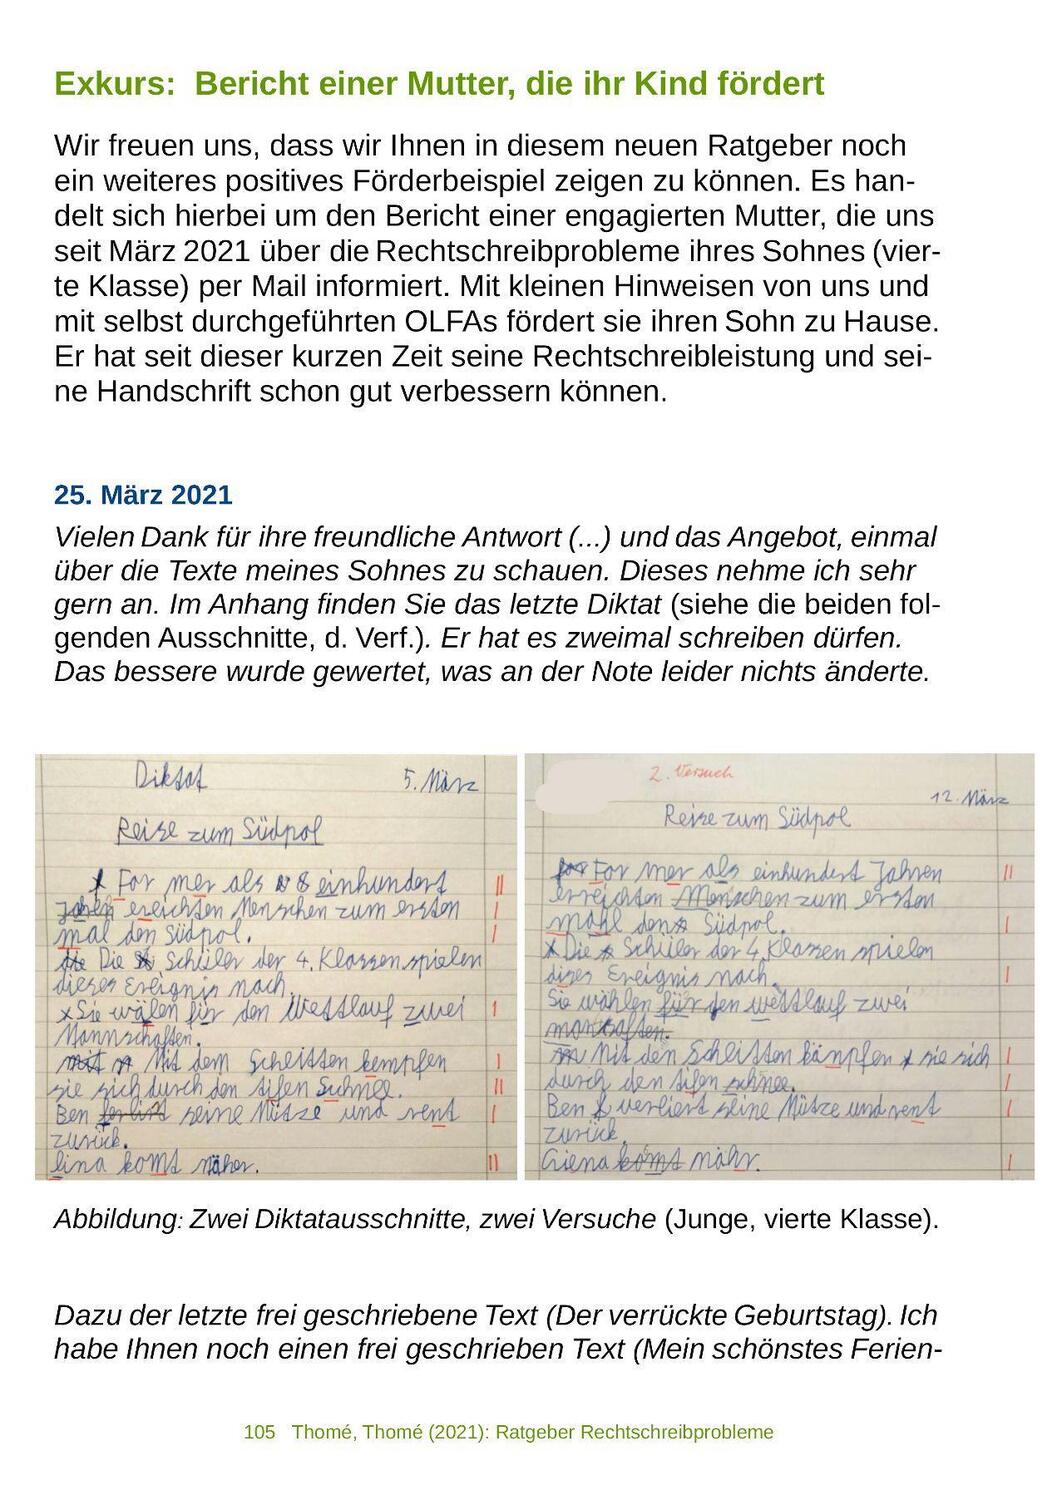 Exkurs:  Bericht einer Mutter, die ihr Kind fördert
Wir freuen uns, dass wir Ihnen in diesem neuen Ratgeber noch
ein weiteres positives Förderbeispiel zeigen zu können. Es han-
delt sich hierbei um den Bericht einer engagierten Mutter, die uns
seit März 2021 über die Rechtschreibprobleme ihres Sohnes (vier-
te Klasse) per Mail informiert. Mit kleinen Hinweisen von uns und
mit selbst durchgeführten OLFAs fördert sie ihren Sohn zu Hause.
Er hat seit dieser kurzen Zeit seine Rechtschreibleistung und sei-
ne Handschrift schon gut verbessern können.
25. März 2021
Vielen Dank für ihre freundliche Antwort (...) und das Angebot, einmal
über die Texte meines Sohnes zu schauen. Dieses nehme ich sehr
gern an. Im Anhang finden Sie das letzte Diktat (siehe die beiden fol-
genden Ausschnitte, d. Verf.). Er hat es zweimal schreiben dürfen.
Das bessere wurde gewertet, was an der Note leider nichts änderte.
Diktat 5. März
Reise zum Südpol
For mer als einhundert
ereichten Menschen zum ersten
mal den Südpol.
Die Schüler der 4. Klassen spielen
dieses Ereignis nach.
Sie wälen für den Wettlauf zwei
Mannschaften.
Mit dem Schlitten kempfen
sie sich durch den tifen Schnee.
Ben seine Mütze und rent
zurück.
lina komt näher.
2. Versuch
12. März
Reise zum Südpol
For mer als einhundert Jahren
erreichten Menschen zum ersten
mahl den Südpol.
Die Schüler der 4. Klassen spielen
dises Ereignis nach.
Sie wählen für den wettlauf zwei
Mit den Schlitten kämpfen sie sich
durch den tifen schnee.
Ben verliert seine Mütze und rent
zurück.
komt nähr.
Abbildung: Zwei Diktatausschnitte, zwei Versuche (Junge, vierte Klasse).
Dazu der letzte frei geschriebene Text (Der verrückte Geburtstag). Ich
habe Ihnen noch einen frei geschrieben Text (Mein schönstes Ferien-
105   Thomé, Thomé (2021): Ratgeber Rechtschreibprobleme